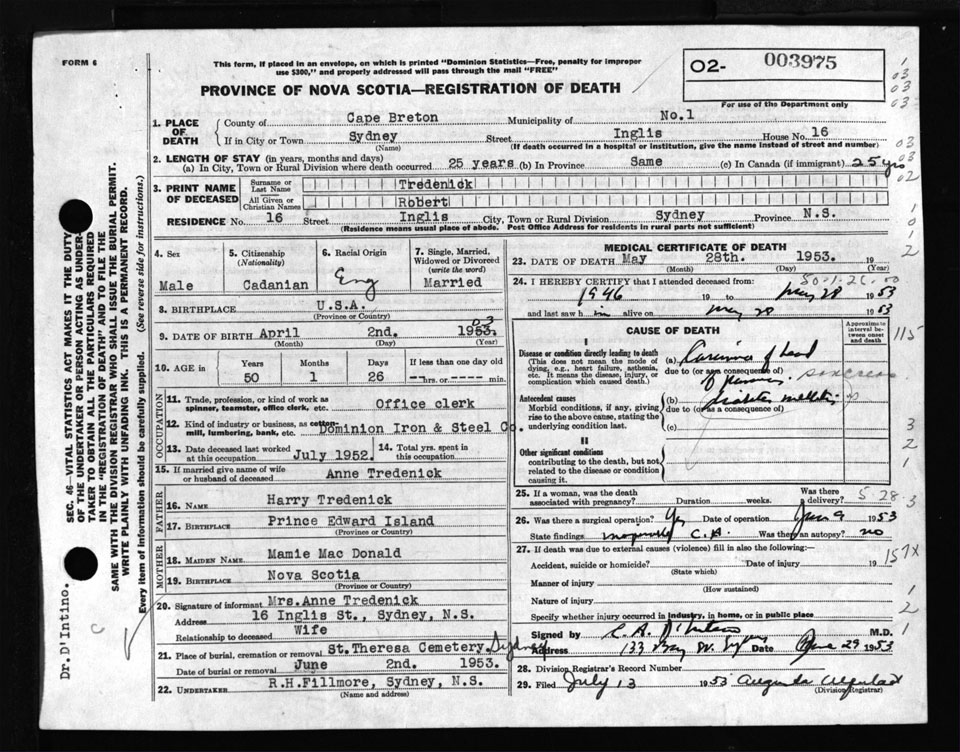 FORM 6
This form, if placed in an envelope, on which is printed "Dominion Statistics—Free, penalty for improper
use $300," and properly addressed will pass through the mail "FREE"
O2- 003975
For use of the Department only
PROVINCE OF NOVA SCOTIA—REGISTRATION OF DEATH
1. PLACE OF DEATH
County of Cape Breton Municipality of No.1
If in City or Town Sydney Street Inglis House No. 16
(Name) (If death occurred in a hospital or institution, give the name instead of street and number)
2. LENGTH OF STAY (in years, months and days)
(a) In City, Town or Rural Division where death occurred 25 years (b) In Province Same (c) In Canada (if immigrant) 25 yrs
3. PRINT NAME OF DECEASED
Surname or Last Name Tredenick
All Given or Christian Names Robert
RESIDENCE No. 16 Street Inglis City, Town or Rural Division Sydney Province N.S.
(Residence means usual place of abode. Post Office Address for residents in rural parts not sufficient)
4. Sex
Male
5. Citizenship (Nationality)
Cadanian
6. Racial Origin
Eng
7. Single, Married, Widowed or Divorced (write the word)
Married
8. BIRTHPLACE U.S.A.
(Province or Country)
9. DATE OF BIRTH April 2nd. 1953. 03
(Month) (Day) (Year)
10. AGE in
Years Months Days If less than one day old
50 1 26 --hrs. or ---- min.
OCCUPATION
11. Trade, profession, or kind of work as spinner, teamster, office clerk, etc. Office clerk
12. Kind of industry or business, as cotton-mill, lumbering, bank, etc. Dominion Iron & Steel Co.
13. Date deceased last worked at this occupation July 1952.
14. Total yrs. spent in this occupation
15. If married give name of wife or husband of deceased Anne Tredenick
FATHER
16. NAME Harry Tredenick
17. BIRTHPLACE Prince Edward Island
(Province or Country)
MOTHER
18. MAIDEN NAME Mamie Mac Donald
19. BIRTHPLACE Nova Scotia
(Province or Country)
20. Signature of informant Mrs.Anne Tredenick
Address 16 Inglis St., Sydney, N.S.
Relationship to deceased Wife
21. Place of burial, cremation or removal St.Theresa Cemetery. Sydney
Date of burial or removal June 2nd. 1953.
22. UNDERTAKER R.H.Fillmore, Sydney, N.S.
(Name and address)
MEDICAL CERTIFICATE OF DEATH
23. DATE OF DEATH May 28th. 1953. 19
(Month) (Day) (Year)
24. I HEREBY CERTIFY that I attended deceased from:
1946 19 to May 28 1953
and last saw him alive on May 28 1953
CAUSE OF DEATH
Approximate interval between onset and death
I
Disease or condition directly leading to death
(This does not mean the mode of dying, e.g., heart failure, asthenia, etc. It means the disease, injury, or complication which caused death.)
(a) Carcinoma of head
due to (or as a consequence of)
of pancreas. pancreas
Antecedent causes
Morbid conditions, if any, giving rise to the above cause, stating the underlying condition last.
(b) diabetes mellitus
due to (or as a consequence of)
(c)
II
Other significant conditions
contributing to the death, but not related to the disease or condition causing it.
25. If a woman, was the death associated with pregnancy? Duration weeks. Was there a delivery? 5 28
26. Was there a surgical operation? Yes Date of operation Jan 9 1953
State findings C.A. Was there an autopsy? no
27. If death was due to external causes (violence) fill in also the following:—
Accident, suicide or homicide? Date of injury 19
(State which)
Manner of injury
(How sustained)
Nature of injury
Specify whether injury occurred in industry, in home, or in public place
Signed by C. A. D'Intino M.D.
Address 133 Date June 29 1953
28. Division Registrar's Record Number
29. Filed July 13 1953 Augusta
(Division Registrar)
1
03
03
03
03
03
02
1
0
1
2
115
3
2
1
3
157X
1
2
1
SEC. 46—VITAL STATISTICS ACT MAKES IT THE DUTY
OF THE UNDERTAKER OR PERSON ACTING AS UNDER-
TAKER TO OBTAIN ALL THE PARTICULARS REQUIRED
IN THE "REGISTRATION OF DEATH" AND TO FILE THE
SAME WITH THE DIVISION REGISTRAR WHO SHALL ISSUE THE BURIAL PERMIT.
WRITE PLAINLY WITH UNFADING INK. THIS IS A PERMANENT RECORD.
Every item of information should be carefully supplied. (See reverse side for instructions.)
Dr. D'Intino.